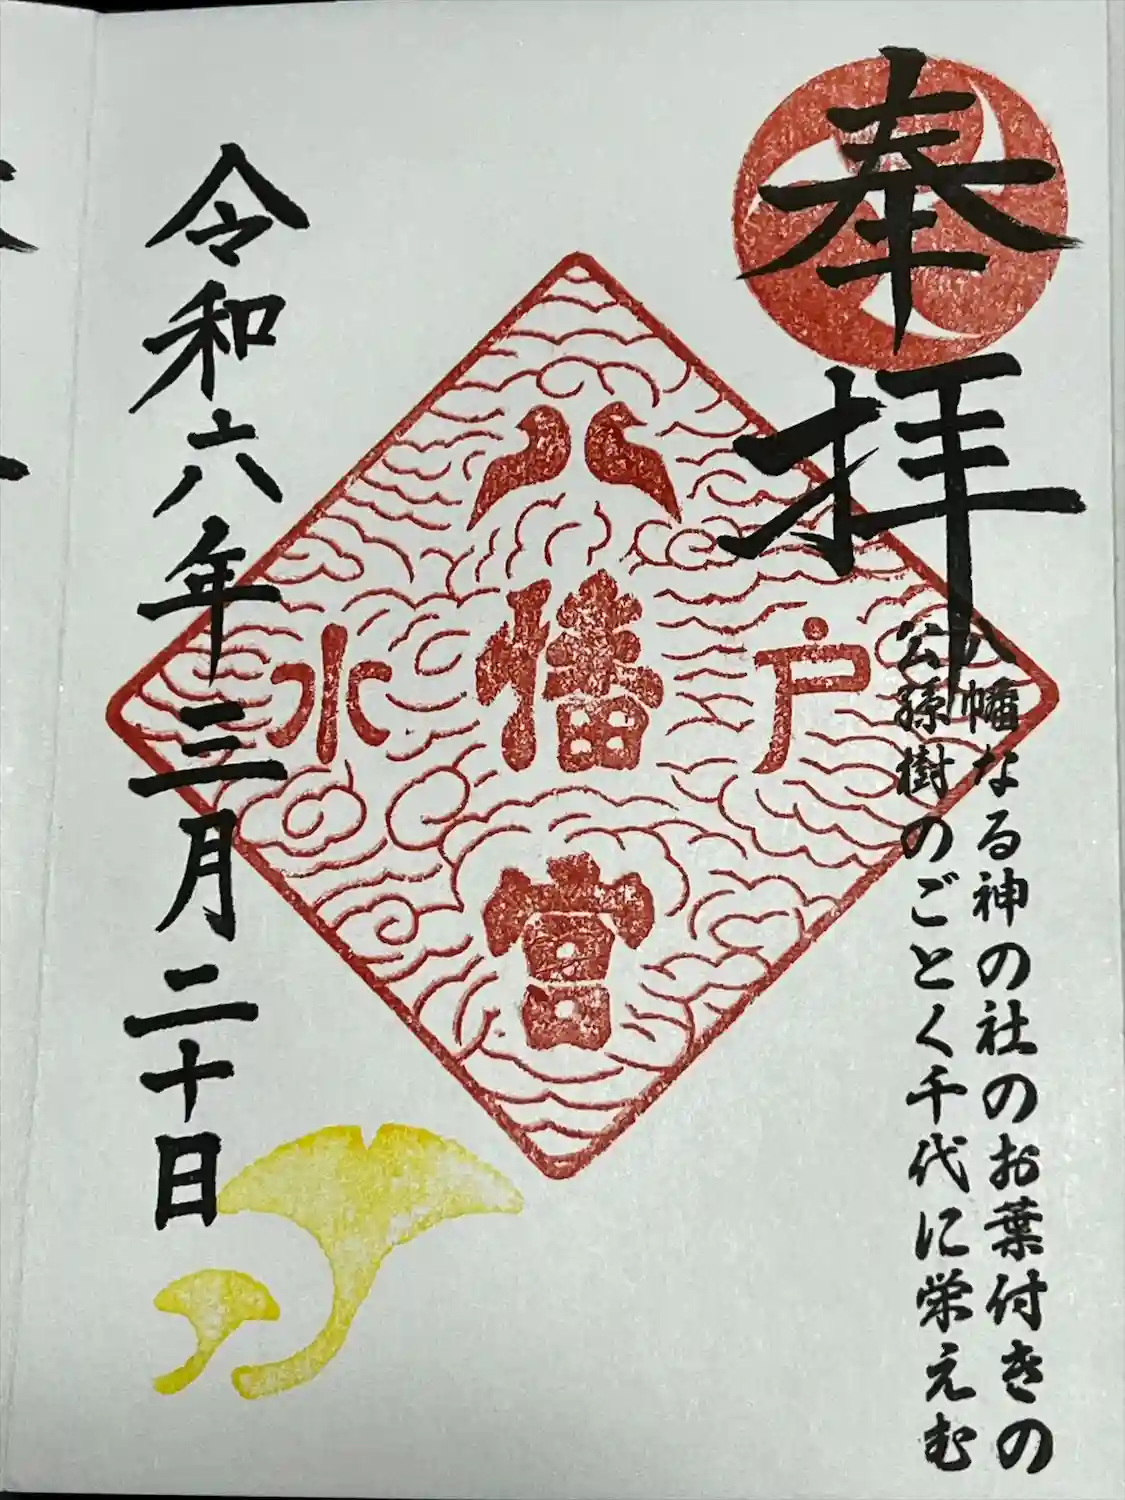 奉拝
八幡なる神の社のお葉付きの
公孫樹のごとく千代に栄えむ
水戸
八幡宮
令和六年三月二十日